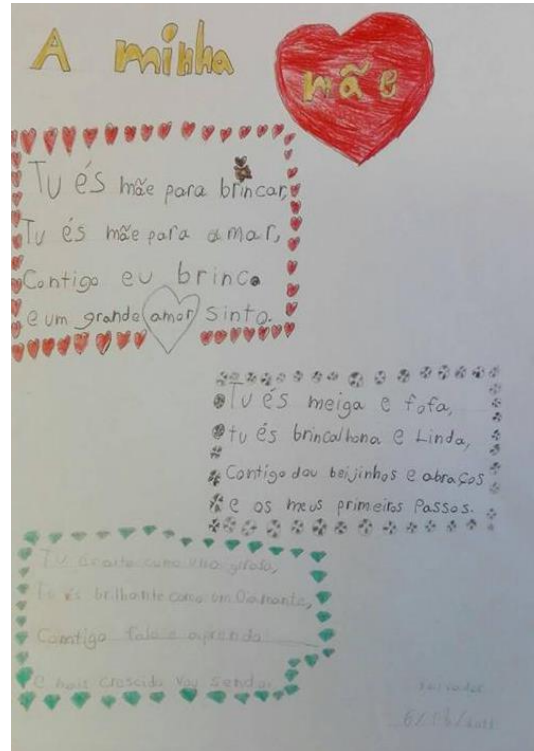 A minha
mãe
Tu és mãe para brincar,
Tu és mãe para amar,
Contigo eu brinco
e um grande amor sinto.
Tu és meiga e fofa,
tu és brincalhona e Linda,
Contigo dou beijinhos e abraços
e os meus primeiros Passos.
Tu és alta como uma girafa,
Tu és brilhante como um Diamante,
Comtigo falo e aprendo
e mais crescido vou sendo.